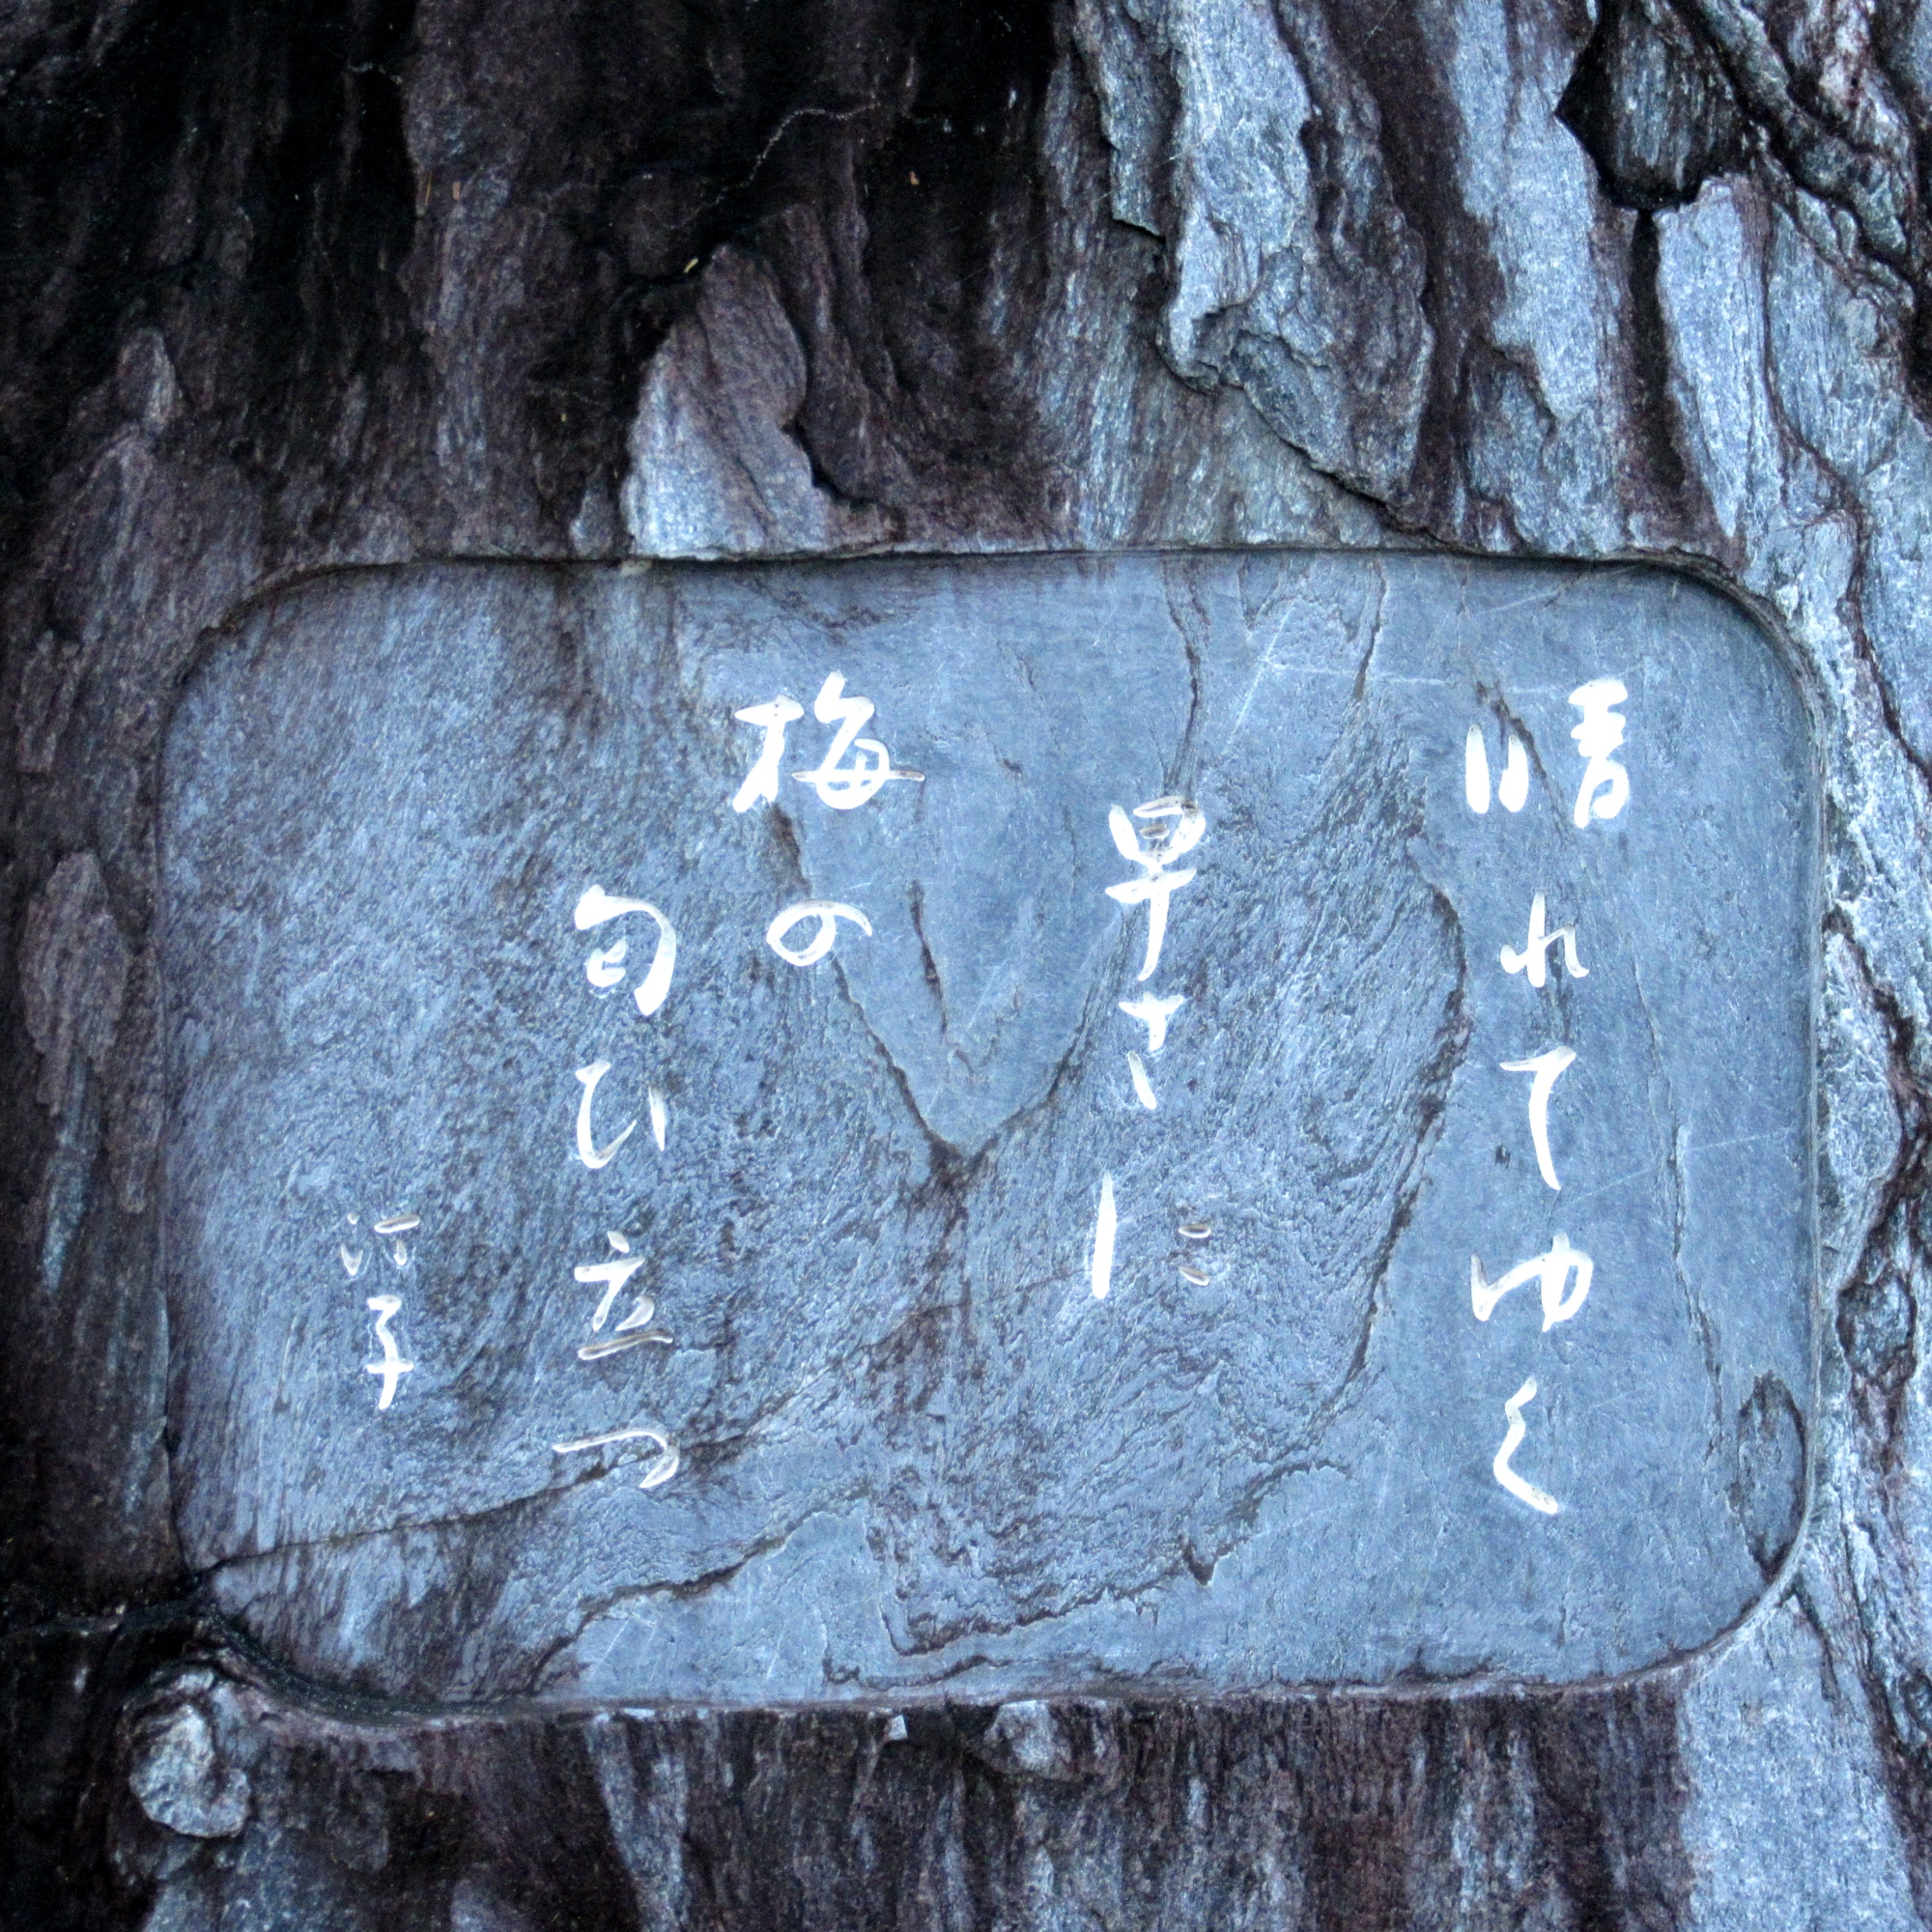 晴れてゆく
早さに
梅の
匂ひ立つ
汀子